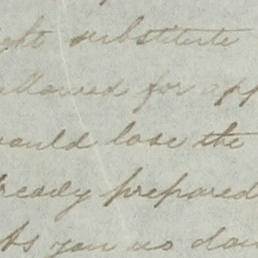 substitute
allowed for app
would lose the
ready prepared
As you no dou